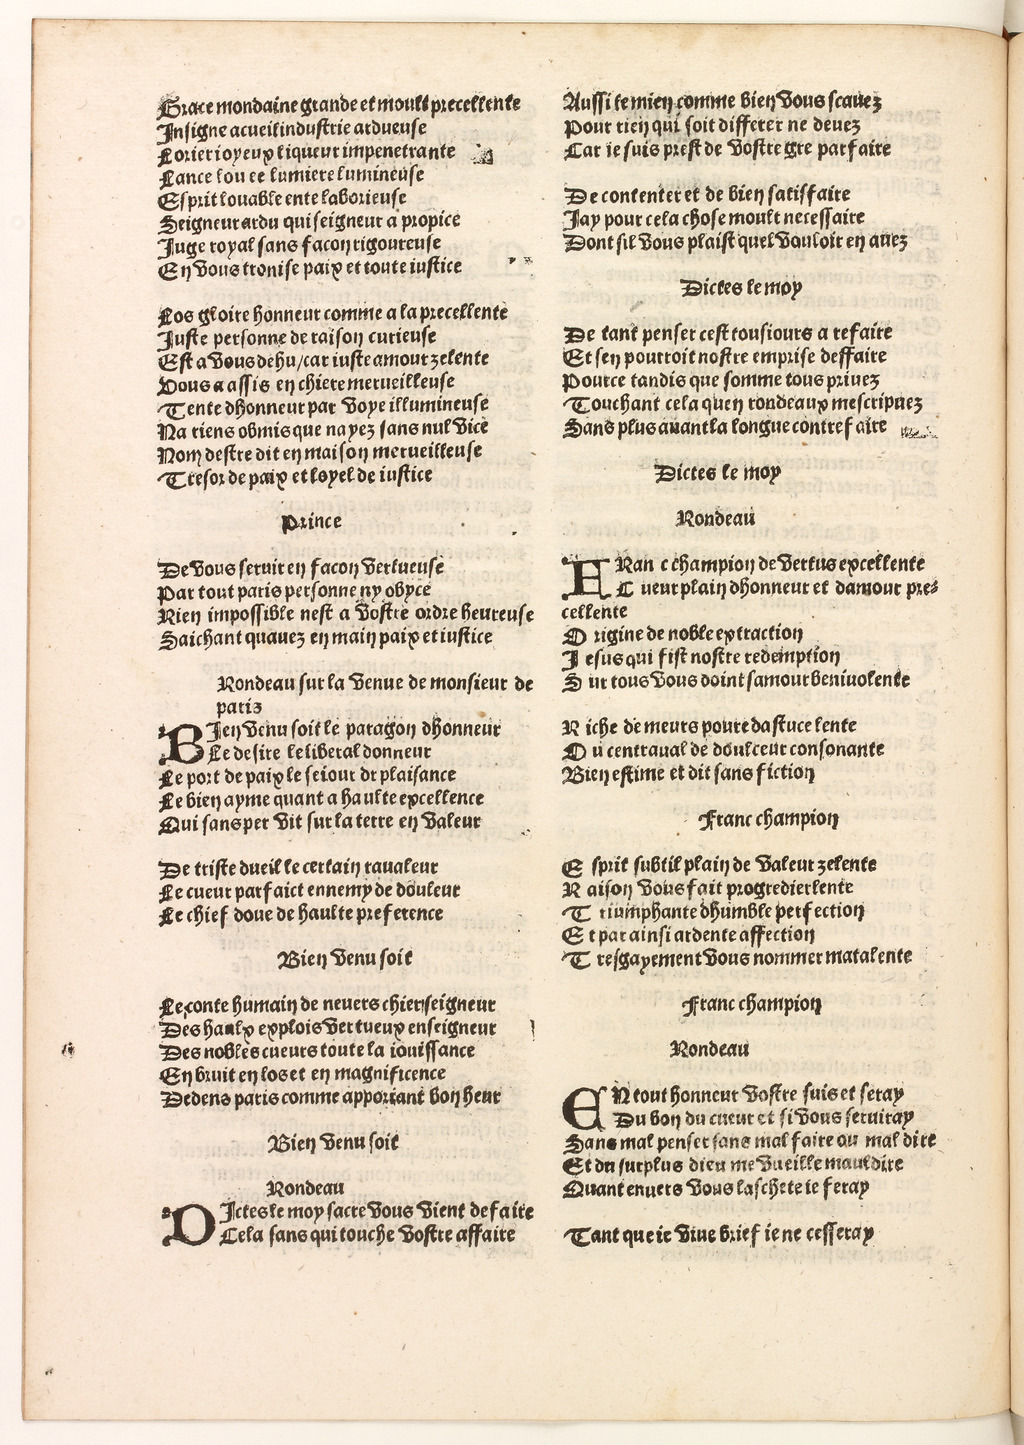 Grace mondaine grande et moult precellente
Insigne acueil industrie ardueuse
Lorier ioyeux liqueur impenetrante
Lance louee lumiere lumineuse
Esprit louable ente laborieuse
Seigneur ardu qui seigneur a propice
Iuge royal sans facon rigoureuse
En vous tronise paix et toute iustice
Los gloire honneur comme a la precellente
Iuste personne de raison curieuse
Est a vous dehu/car iuste amour zelente
Vous a assis en chiere merueilleuse
Tente dhonneur par voye illumineuse
Na riens obmis que nayez sans nul vice
Nom destre dit en maison merueilleuse
Tresor de paix et loyel de iustice
Prince
De vous seruir en facon vertueuse
Par tout paris personne ny obyce
Rien impossible nest a vostre ordre heureuse
Saichant quauez en main paix et iustice
Rondeau sur la venue de monsieur de
paris
BIen venu soit le paragon dhonneur
Le desire le liberal donneur
Le port de paix le seiour de plaisance
Le bien ayme quant a haulte excellence
Qui sans per vit sur la terre en valeur
De triste dueil le certain raualeur
Le cueur parfaict ennemy de douleur
Le chief doue de haulte preference
Bien venu soit
Le conte humain de neuers chier seigneur
Des haulx explois vertueux enseigneur
Des nobles cueurs toute la iouissance
En bruit en los et en magnificence
Dedens paris comme apportant bon heur
Bien venu soit
Rondeau
DIctes le moy sacre vous vient de faire
Cela sans qui touche vostre affaire
Aussi le mien comme bien vous scauez
Pour rien qui soit differer ne deuez
Car ie suis prest de vostre gre parfaire
De contenter et de bien satisfaire
Iay pour cela chose moult necessaire
Dont sil vous plaist quel vouloir en auez
Dictes le moy
De tant penser cest tousiours a refaire
Et sen pourroit nostre emprise deffaire
Pource tandis que somme tous priuez
Touchant cela quen rondeaux mescripuez
Sans plus auant la longue contrefaire
Dictes le moy
Rondeau
FRanc champion de vertus excellente
Cueur plain dhonneur et damour pre-
cellente
Origine de noble extraction
Iesus qui fist nostre redemption
Sur tous vous doint samour beniuolente
Riche de meurs poure dastuce lente
Ou centraual de doulceur consonante
Bien estime et dit sans fiction
Franc champion
Esprit subtil plain de valeur zelente
Raison vous fait progredier lente
Triumphante dhumble perfection
Et par ainsi ardente affection
Tresgayement vous nommer matalente
Franc champion
Rondeau
EN tout honneur vostre suis et seray
Du bon du cueur et si vous seruiray
Sans mal penser sans mal faire ou mal dire
Et du surplus dieu me vueille mauldire
Quant enuers vous laschete ie feray
Tant que ie viue brief ie ne cesseray